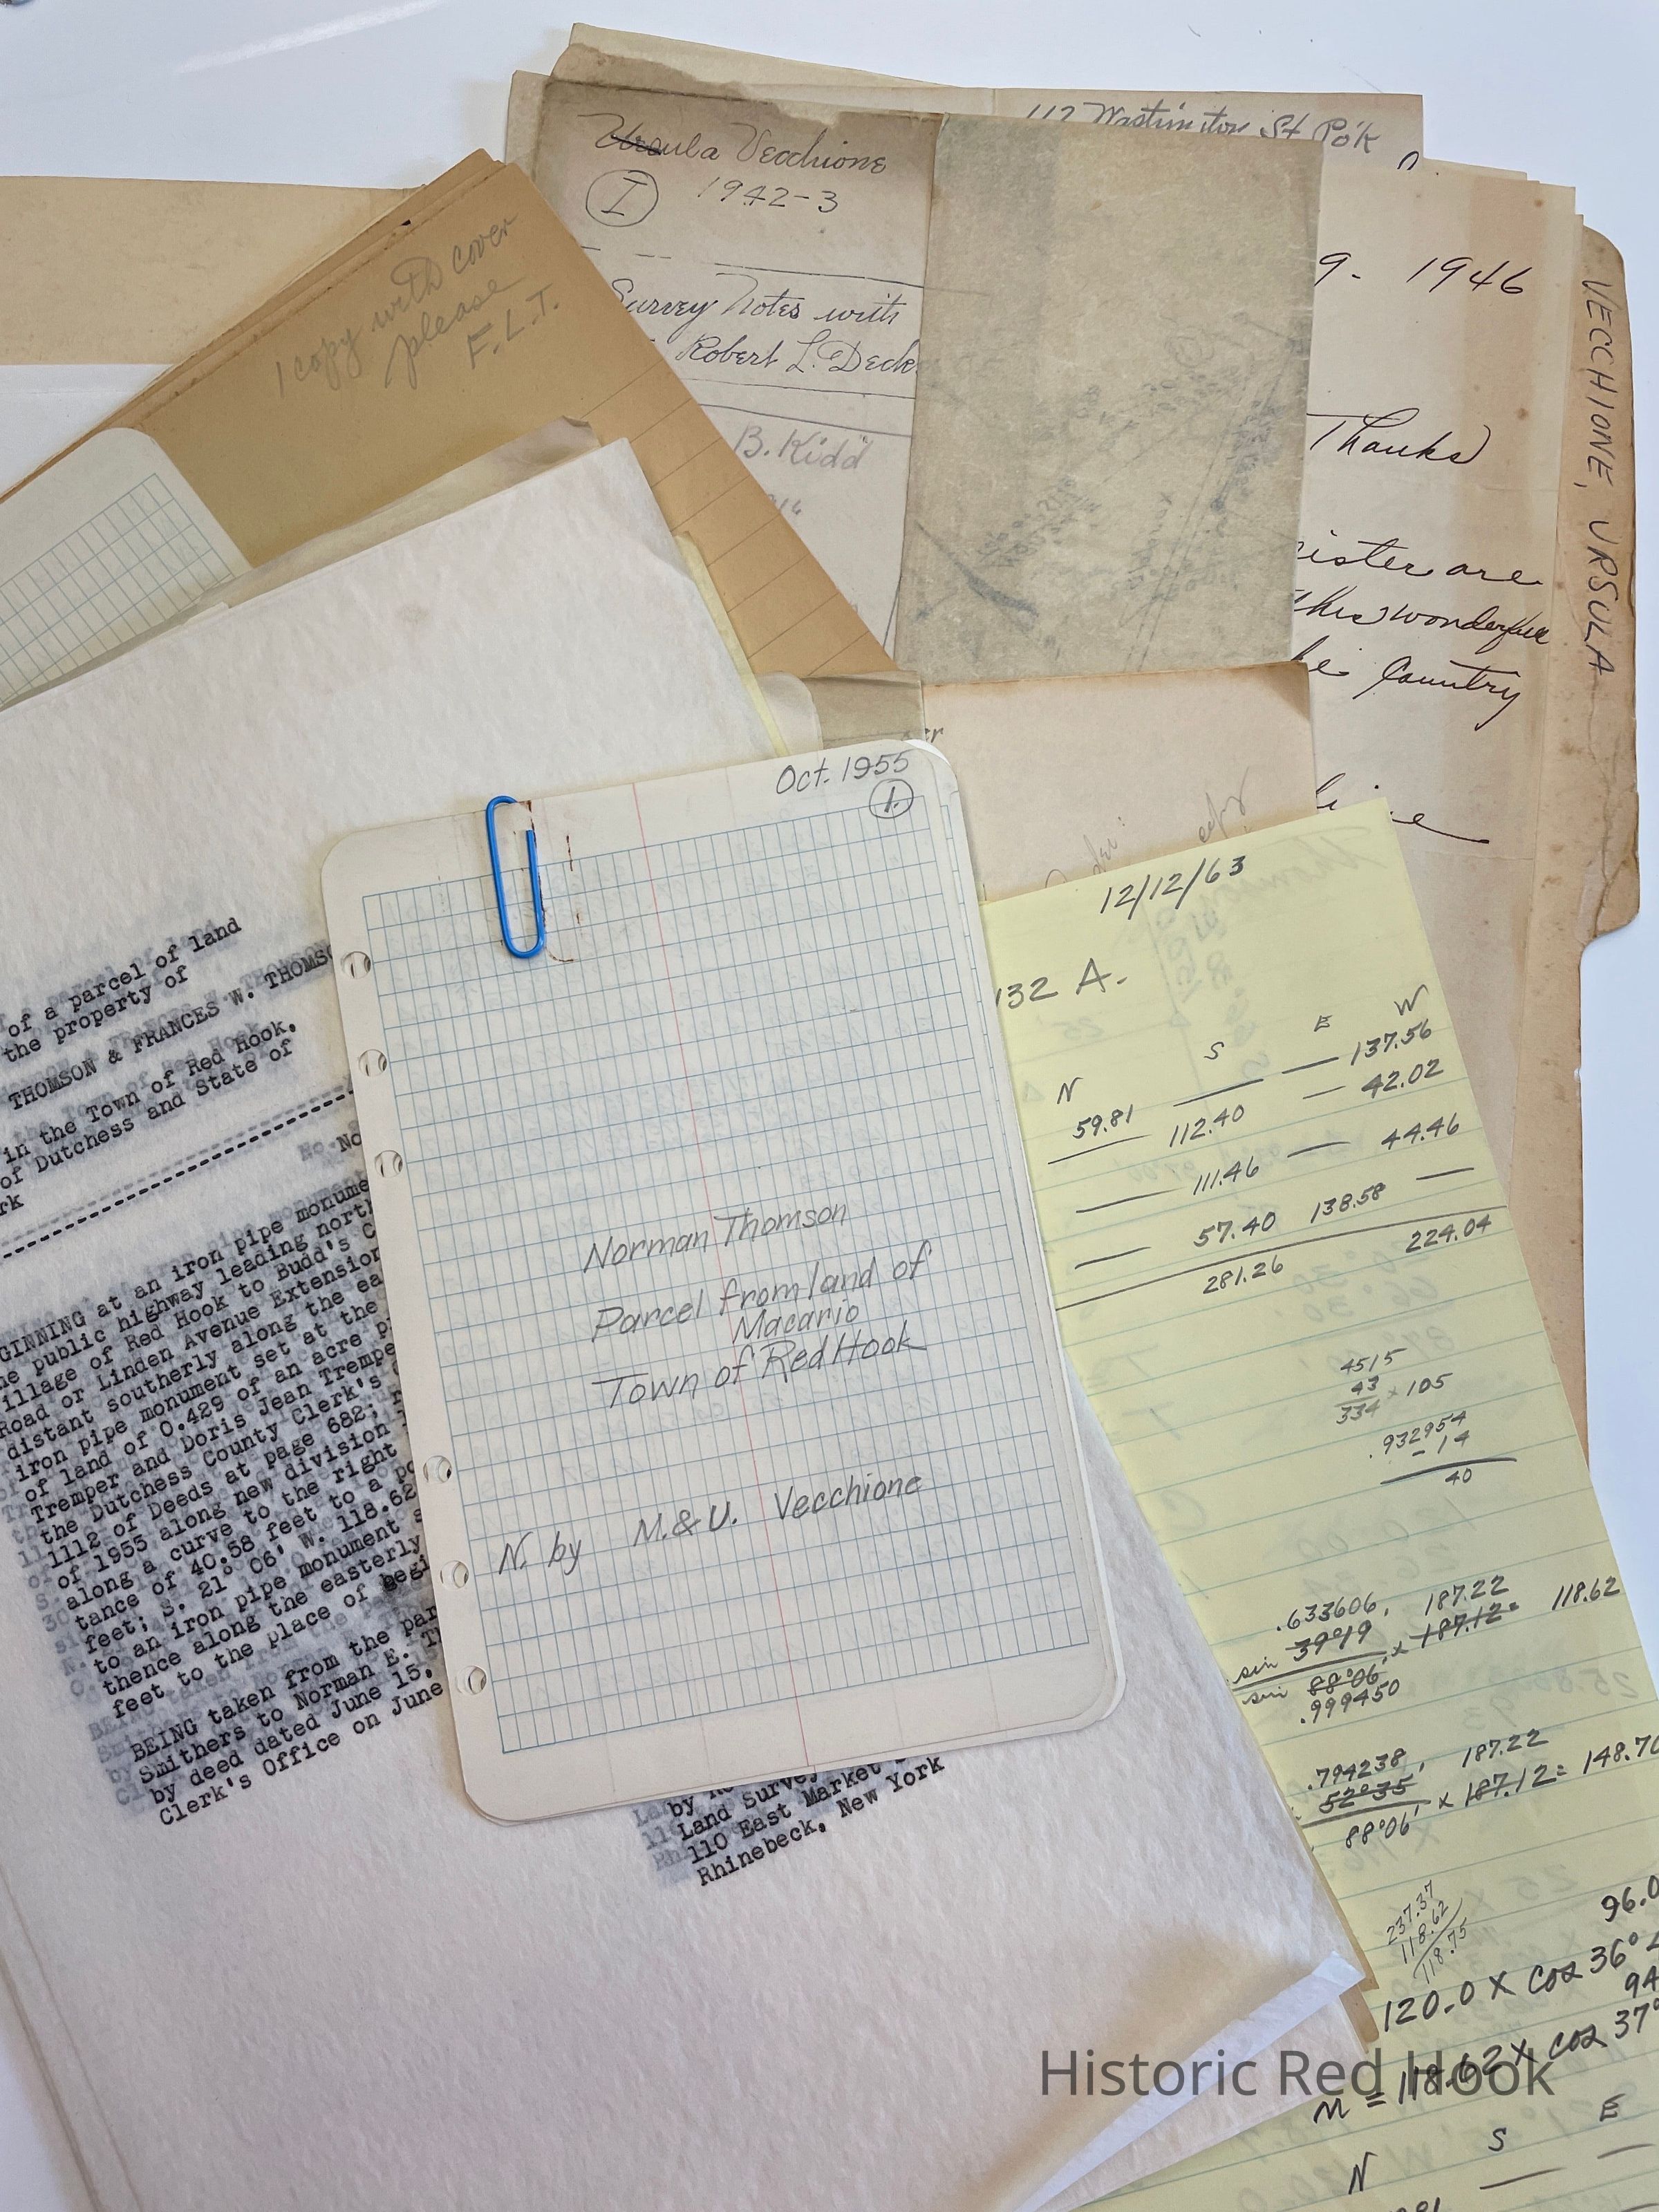 112 Washington St Po'k
Ursula Vecchione
I 1942-3
Survey Notes with
Robert L. Deck
B. Kidd
9- 1946
Thanks
ister are
this wonderful
Country
VECCHIONE, URSULA
1 copy with cover
please
F.L.T.
of a parcel of land
the property of
THOMSON & FRANCES W. THOMSO
in the Town of Red Hook,
of Dutchess and State of
rk
GINNING at an iron pipe monume
public highway leading north
illage of Red Hook to Budd's C
Road or Linden Avenue Extension
distant southerly along the ea
iron pipe monument set at the
of land of 0.429 of an acre p
Tremper and Doris Jean Trempe
the Dutchess County Clerk's
1112 of Deeds at page 682;
of 1955 along new division
along a curve to the right
tance of 40.58 feet to a po
feet; S. 21° 06' W. 118.62
to an iron pipe monument s
thence along the easterly
feet to the place of begi
BEING taken from the par
Smithers to Norman E. T
by deed dated June 15,
Clerk's Office on June
Land Survey
110 East Market
Rhinebeck, New York
Oct. 1955
1.
Norman Thomson
Parcel from land of
Macario
Town of Red Hook
N. by M. & U. Vecchione
12/12/63
132 A.
N S E W
59.81 — — 137.56
— 112.40 — 42.02
— 111.46 — 44.46
— 57.40 138.58 —
281.26 224.04
4515
43 x 105
334
.932954
- 14
40
.633606, 187.22
sin 39°19 x 187.12 = 118.62
sin 88°06'
.999450
.794238, 187.22
52°35 x 187.12 = 148.70
88°06'
237.37
118.62
118.75
96.0
120.0 x cos 36°
94
M = 118.62 x cos 37°
N S E
Historic Red Hook